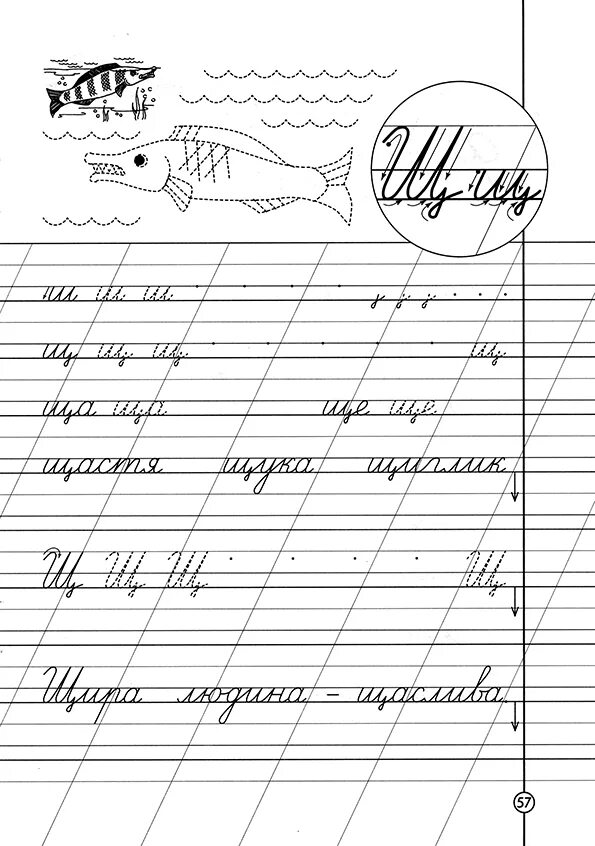 Щ щ
ш ш ш
щ щ щ щ
ща ща ще ще
щастя щука щиглик
Щ Щ Щ Щ
Щира людина – щаслива.
57